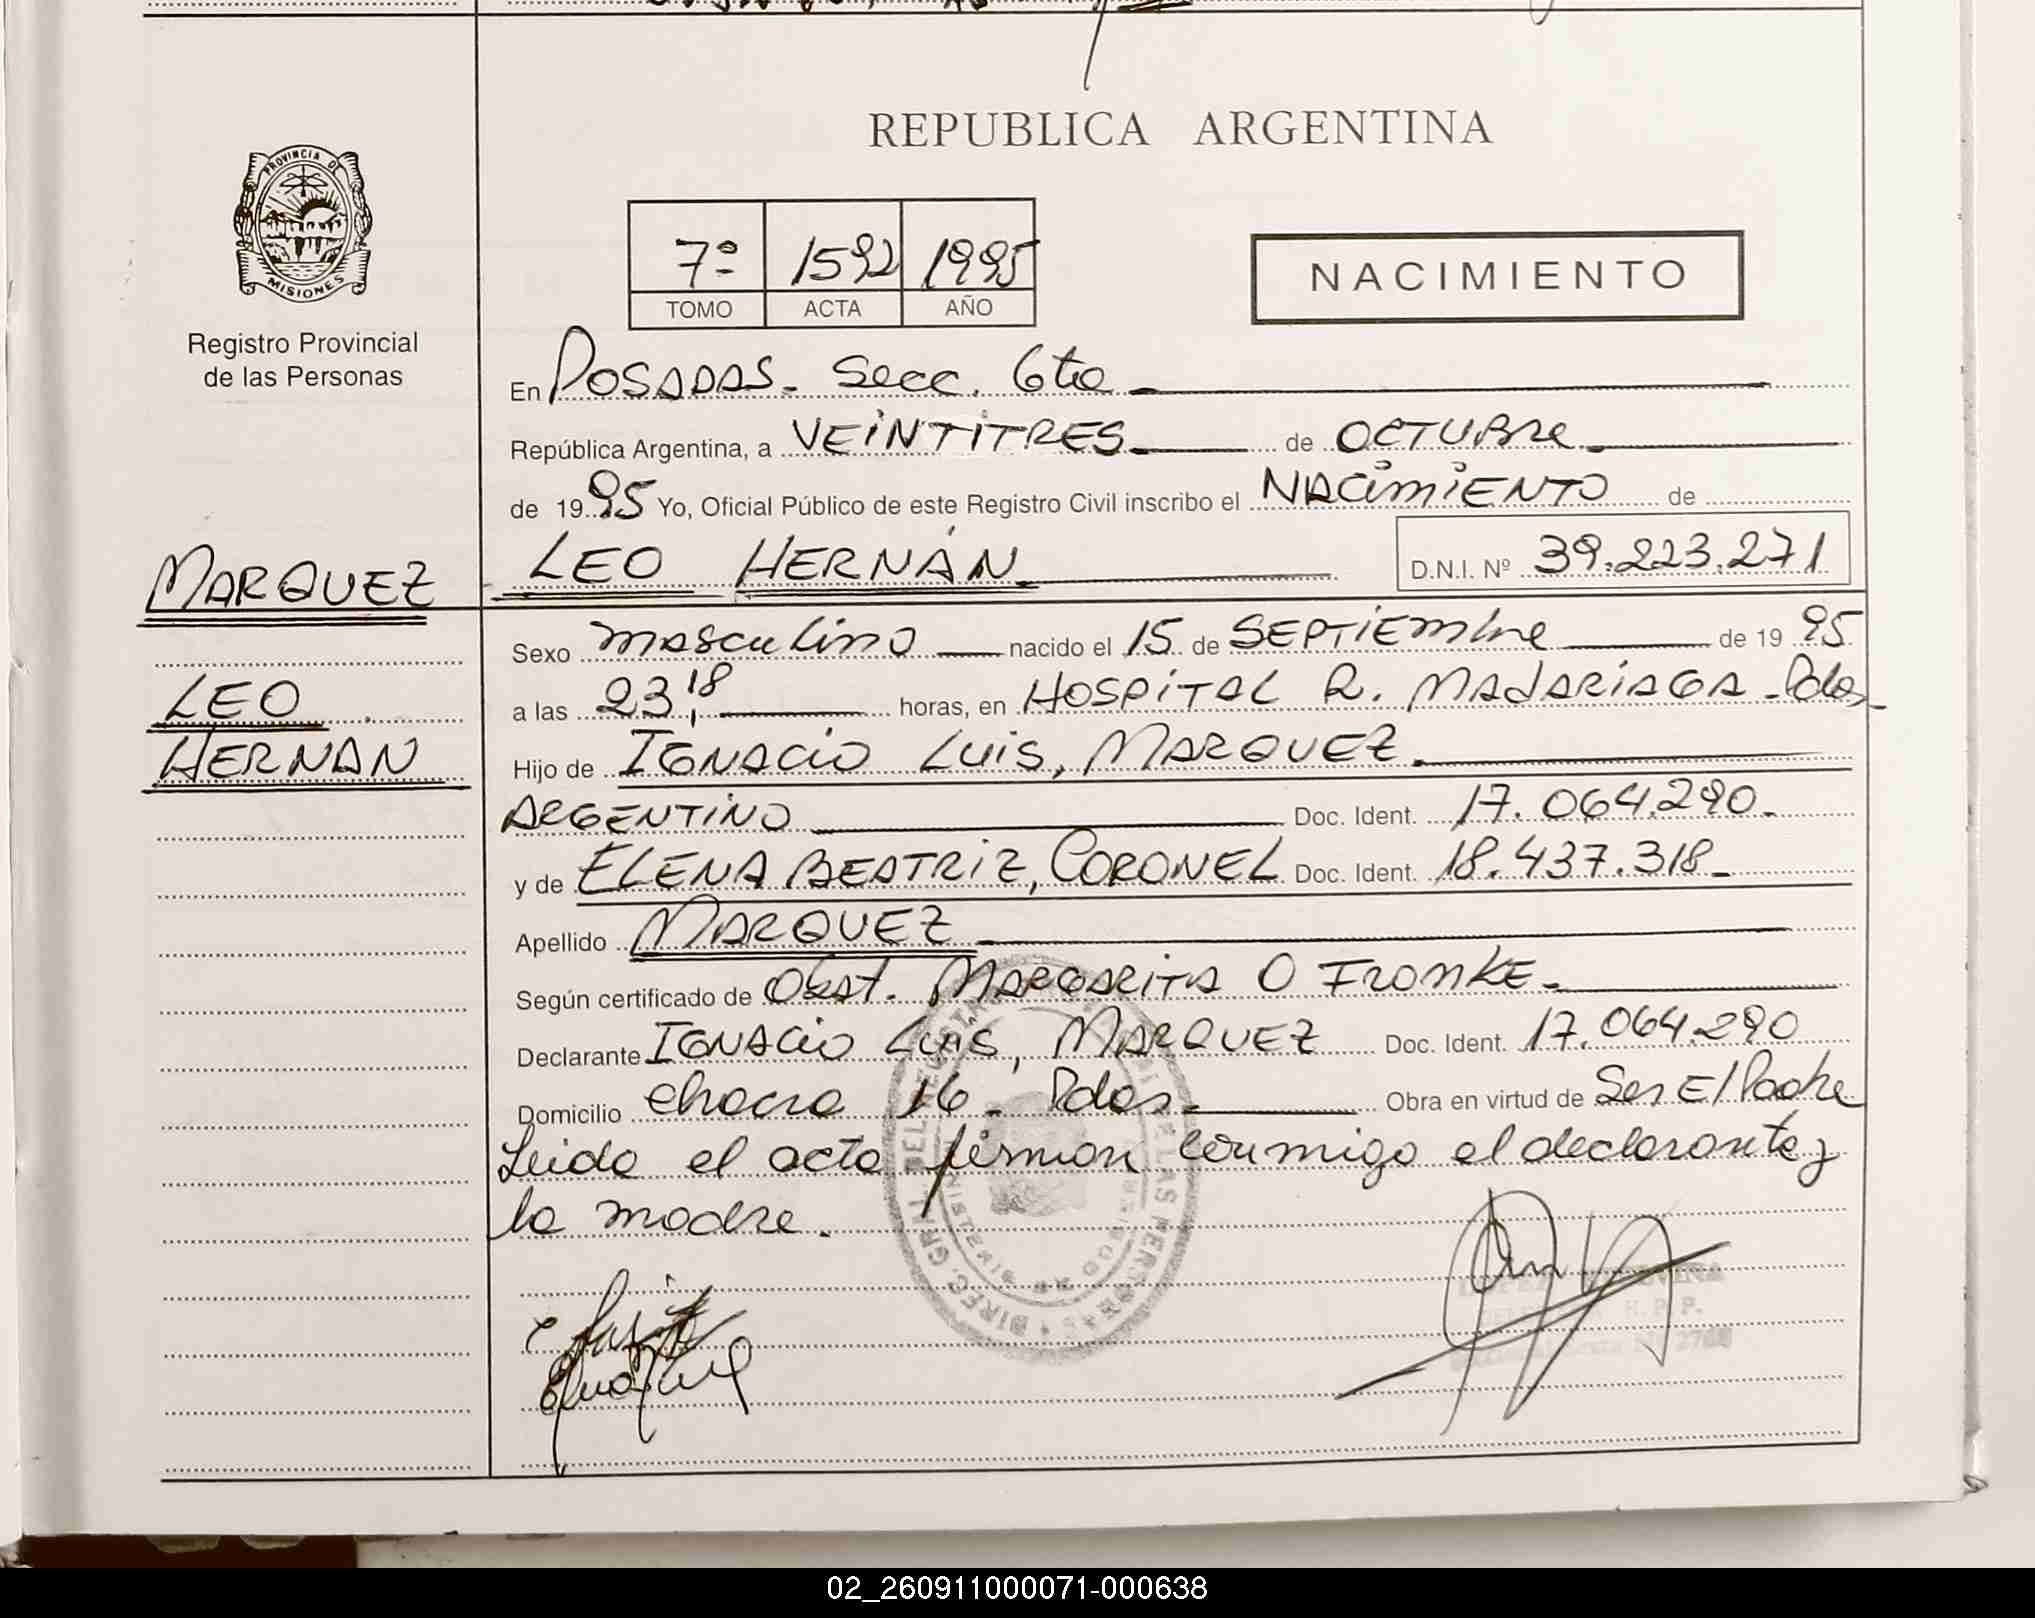 REPUBLICA ARGENTINA
PROVINCIA DE
MISIONES
Registro Provincial
de las Personas
7º 1592 1995
TOMO ACTA AÑO
NACIMIENTO
En POSADAS - Secc. 6ta
República Argentina, a VEINTITRES de OCTUBRE
de 1995 Yo, Oficial Público de este Registro Civil inscribo el NACIMIENTO de
MARQUEZ
LEO HERNAN
LEO HERNÁN D.N.I. Nº 39.223.271
Sexo masculino nacido el 15 de SEPTIEMBRE de 1995
a las 23,18 horas, en HOSPITAL R. MADARIAGA - Pdas
Hijo de IGNACIO LUIS, MARQUEZ
ARGENTINO Doc. Ident. 17.064.290
y de ELENA BEATRIZ, CORONEL Doc. Ident. 18.437.318
Apellido MARQUEZ
Según certificado de Obst. MARGARITA O FROMKE
Declarante IGNACIO LUIS, MARQUEZ Doc. Ident. 17.064.290
Domicilio chacra 16 - Pdas Obra en virtud de Ser El Padre
Leida el acta firman conmigo el declarante y
la madre.
02_260911000071-000638